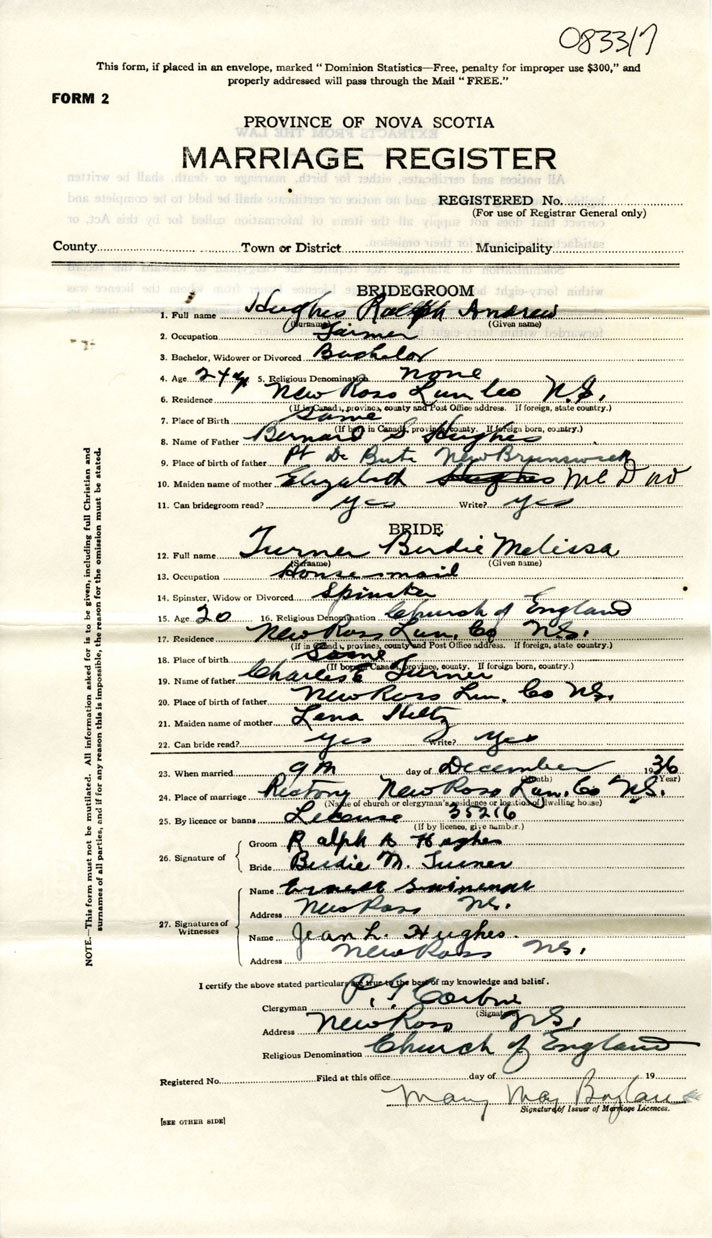 083317
This form, if placed in an envelope, marked "Dominion Statistics—Free, penalty for improper use $300," and
properly addressed will pass through the Mail "FREE."
FORM 2
PROVINCE OF NOVA SCOTIA
MARRIAGE REGISTER
REGISTERED No.
(For use of Registrar General only)
County Town or District Municipality
BRIDEGROOM
1. Full name Hughes Ralph Andrew
(Surname) (Given name)
2. Occupation Farmer
3. Bachelor, Widower or Divorced Bachelor
4. Age 24 5. Religious Denomination none
6. Residence New Ross Lun Co N.S.
(If in Canada, province, county and Post Office address. If foreign, state country.)
7. Place of Birth Same
(If born in Canada, province, county. If foreign born, country.)
8. Name of Father Bernard S Hughes
9. Place of birth of father Pt De Bute New Brunswick
10. Maiden name of mother Elizabeth Hughes
11. Can bridegroom read? yes Write? yes
BRIDE
12. Full name Turner Birdie Melissa
(Surname) (Given name)
13. Occupation Housemaid
14. Spinster, Widow or Divorced Spinster
15. Age 20 16. Religious Denomination Church of England
17. Residence New Ross Lun. Co N.S.
(If in Canada, province, county and Post Office address. If foreign, state country.)
18. Place of birth Same
(If born in Canada, province, county. If foreign born, country.)
19. Name of father Charles Turner
20. Place of birth of father New Ross Lun. Co N.S.
21. Maiden name of mother Lena Hiltz
22. Can bride read? yes Write? yes
23. When married 9th day of December 1936
(Month) (Year)
24. Place of marriage Rectory New Ross Lun. Co N.S.
(Name of church or clergyman's residence or location of dwelling house)
25. By licence or banns License 35216
(If by licence, give number.)
26. Signature of
Groom Ralph A Hughes
Bride Birdie M. Turner
27. Signatures of Witnesses
Name
Address New Ross N.S.
Name Jean L. Hughes
Address New Ross N.S.
I certify the above stated particulars are true to the best of my knowledge and belief.
Clergyman
(Signature)
Address New Ross N.S.
Religious Denomination Church of England
Registered No. Filed at this office day of 19
Mary May
Signature of Issuer of Marriage Licences.
[SEE OTHER SIDE]
NOTE.—This form must not be mutilated. All information asked for is to be given, including full Christian and
surnames of all parties, and if for any reason this is impossible, the reason for the omission must be stated.